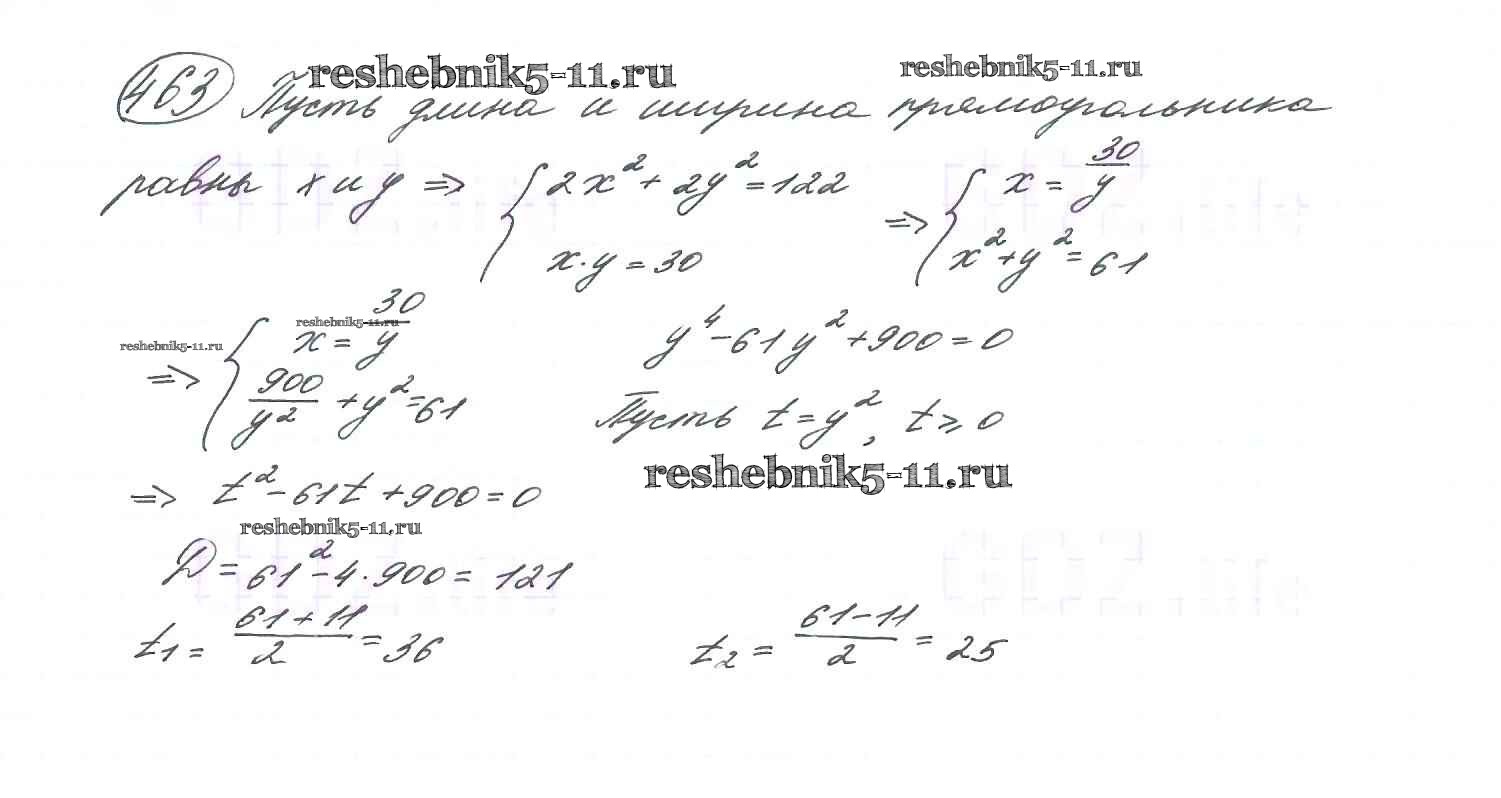 reshebnik5-11.ru reshebnik5-11.ru
463 Пусть длина и ширина прямоугольника
равны x и y => { 2x² + 2y² = 122 => { x = 30/y
x·y = 30 x² + y² = 61
reshebnik5-11.ru reshebnik5-11.ru
=> { x = 30/y y⁴ - 61y² + 900 = 0
900/y² + y² = 61 Пусть t = y², t ⩾ 0
reshebnik5-11.ru
=> t² - 61t + 900 = 0
reshebnik5-11.ru
D = 61² - 4·900 = 121
t₁ = (61 + 11)/2 = 36 t₂ = (61 - 11)/2 = 25